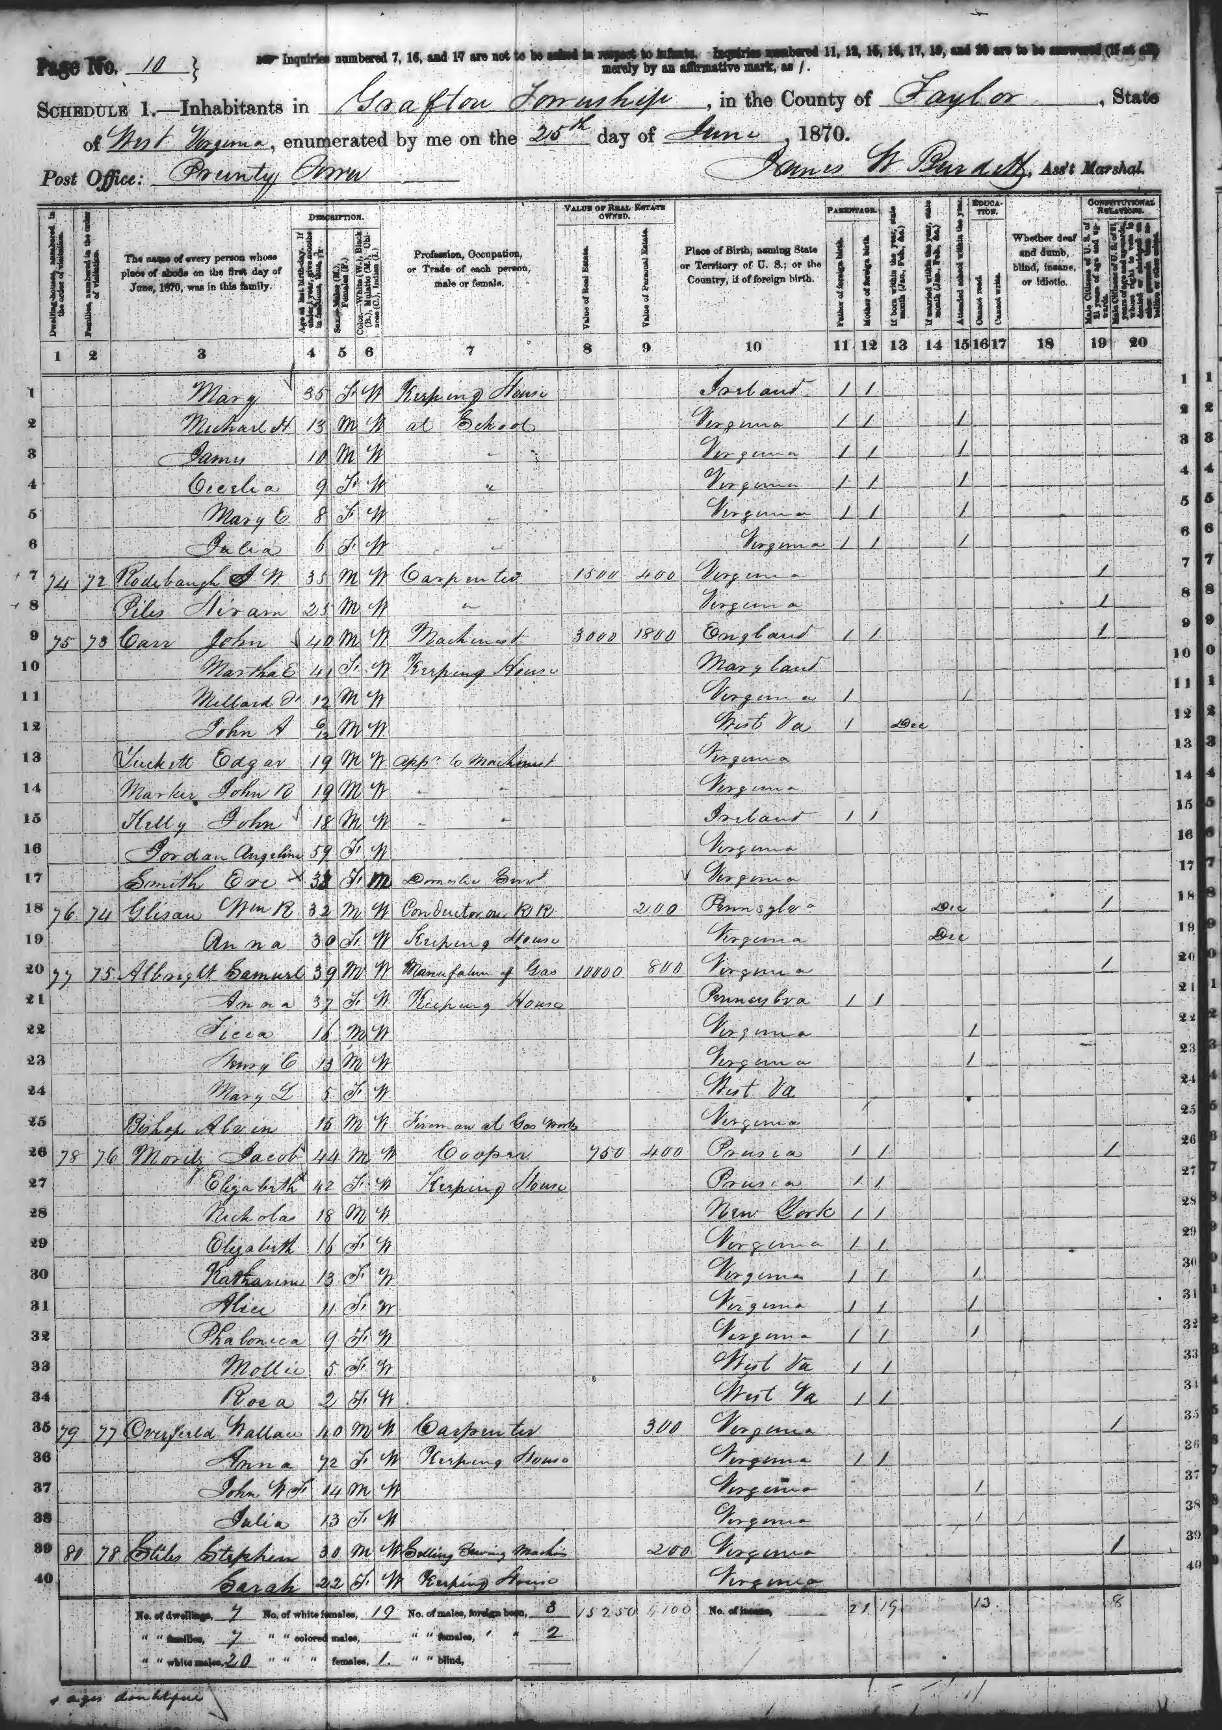 Page No. 10
Inquiries numbered 7, 16, and 17 are not to be asked in respect to infants. Inquiries numbered 11, 12, 15, 16, 17, 19, and 20 are to be answered (if at all)
merely by an affirmative mark, as /.
SCHEDULE 1.—Inhabitants in Grafton Township, in the County of Taylor, State
of West Virginia, enumerated by me on the 25th day of June, 1870.
Post Office: Prunty Town James W Burdett, Ass't Marshal.
DESCRIPTION. VALUE OF REAL ESTATE OWNED. PARENTAGE. EDUCATION. CONSTITUTIONAL RELATIONS.
Dwelling-houses, numbered in the order of visitation.
Families, numbered in the order of visitation.
The name of every person whose place of abode on the first day of June, 1870, was in this family.
Sex.—Males (M.), Females (F.)
Profession, Occupation, or Trade of each person, male or female.
Value of Real Estate.
Value of Personal Estate.
Place of Birth, naming State or Territory of U. S.; or the Country, if of foreign birth.
Father of foreign birth.
Mother of foreign birth.
If born within the year, state month (Jan., Feb., &c.)
If married within the year, state month (Jan., Feb., &c.)
Attended school within the year.
Cannot read.
Cannot write.
Whether deaf and dumb, blind, insane, or idiotic.
1 2 3 4 5 6 7 8 9 10 11 12 13 14 15 16 17 18 19 20
1 Mary 35 F W Keeping House Ireland 1 1 1
2 Michael H 13 M W at School Virginia 1 1 1 2
3 James 10 M W " Virginia 1 1 1 3
4 Cecelia 9 F W " Virginia 1 1 1 4
5 Mary E 8 F W " Virginia 1 1 1 5
6 Julia 6 F W " Virginia 1 1 1 6
7 74 72 Rodebaugh J W 35 M W Carpenter 1500 400 Virginia 1 7
8 Piles Hiram 25 M W " Virginia 1 8
9 75 73 Carr John 40 M W Machinest 3000 1800 England 1 1 1 9
10 Martha E 41 F W Keeping House Maryland 10
11 Millard F 12 M W Virginia 1 1 11
12 John A 6/12 M W West Va 1 Dec 12
13 Tuckett Edgar 19 M W app. to Machinest Virginia 13
14 Marker John R 19 M W " " Virginia 14
15 Kelly John 18 M W " " Ireland 1 1 15
16 Jordan Angeline 59 F W Virginia 16
17 Smith Eve 32 F M Domestic Servt Virginia 17
18 76 74 Glisan Wm R 32 M W Conductor on R R 200 Pennsylva Dec 1 18
19 Anna 30 F W Keeping House Virginia Dec 19
20 77 75 Albright Samuel 39 M W Manufature of Gas 10000 800 Virginia 1 20
21 Anna 37 F W Keeping House Pennsylva 1 1 21
22 16 M W Virginia 1 22
23 Henry C 13 M W Virginia 1 23
24 Mary L 5 F W West Va 24
25 Bishop Alvin 15 M W Fireman at Gas Works Virginia 25
26 78 76 Moritz Jacob 44 M W Cooper 750 400 Prusia 1 1 1 26
27 Elizabeth 42 F W Keeping House Prusia 1 1 27
28 Nicholas 18 M W New York 1 1 28
29 Elizabeth 16 F W Virginia 1 1 29
30 Katharine 13 F W Virginia 1 1 1 30
31 Alice 11 F W Virginia 1 1 1 31
32 Phalonica 9 F W Virginia 1 1 1 32
33 Mollie 5 F W West Va 1 1 33
34 Rosa 2 F W West Va 1 1 34
35 79 77 Overfield Wallace 40 M W Carpenter 300 Virginia 1 35
36 Anna 72 F W Keeping House Virginia 1 1 36
37 John W F 14 M W Virginia 1 37
38 Julia 13 F W Virginia 1 38
39 80 78 Stiles Stephen 30 M W Selling Sewing Machins 200 Virginia 1 39
40 Sarah 22 F W Keeping House Virginia 40
No. of dwellings, 7 No. of white females, 19 No. of males, foreign born, 3 15250 4100 No. of insane, 21 19 13 8
" " families, 7 " " colored males, " " females, " " 2
" " white males, 20 " " " females, 1 " " blind,
+ ages doubtful